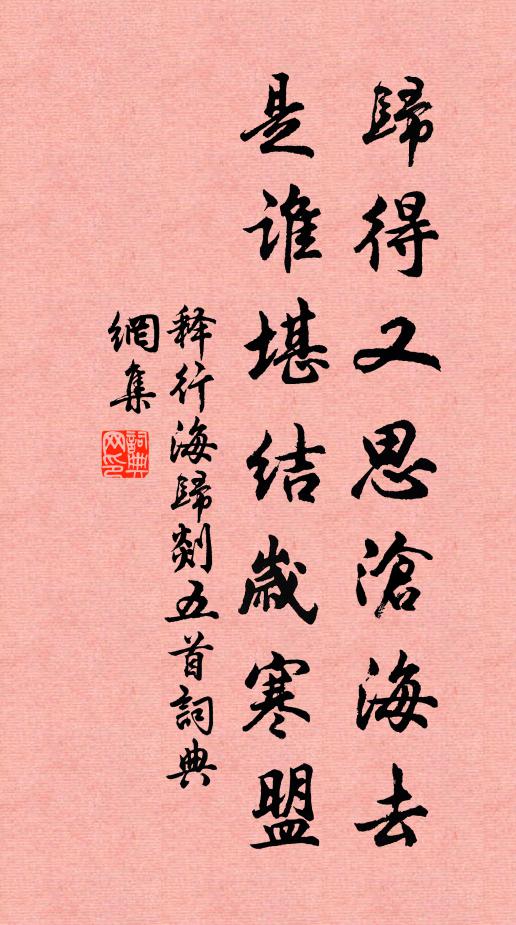 歸得又思滄海去
是誰堪結歲寒盟
释行海歸剡五首詞典
網集
詞典
网印